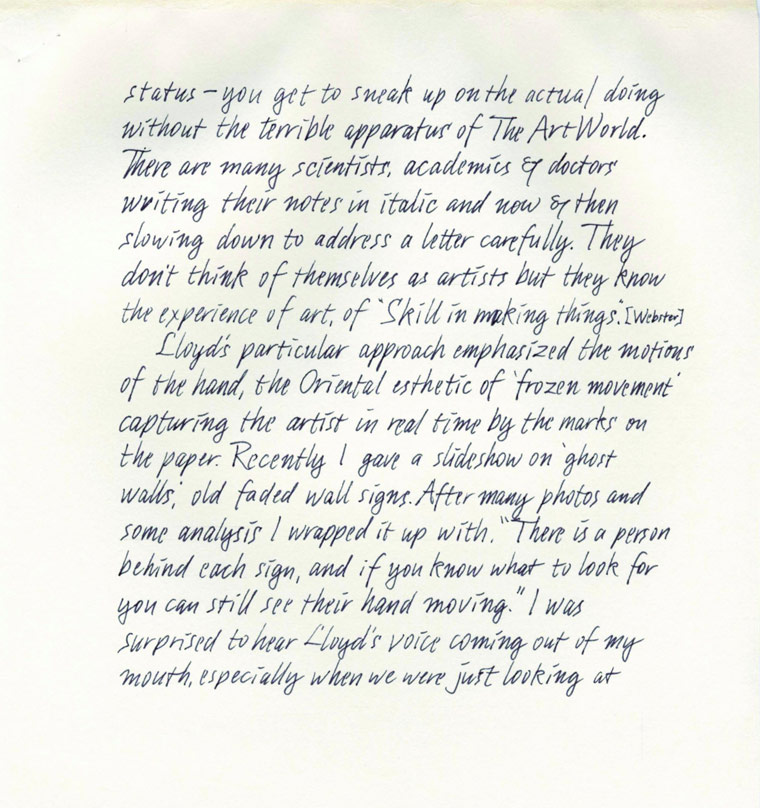 status – you get to sneak up on the actual doing
without the terrible apparatus of The Art World.
There are many scientists, academics & doctors
writing their notes in italic and now & then
slowing down to address a letter carefully. They
don't think of themselves as artists but they know
the experience of art, of "Skill in making things". [Webster]
Lloyd's particular approach emphasized the motions
of the hand, the Oriental esthetic of 'frozen movement'
capturing the artist in real time by the marks on
the paper. Recently I gave a slideshow on 'ghost
walls', old faded wall signs. After many photos and
some analysis I wrapped it up with, "There is a person
behind each sign, and if you know what to look for
you can still see their hand moving." I was
surprised to hear Lloyd's voice coming out of my
mouth, especially when we were just looking at